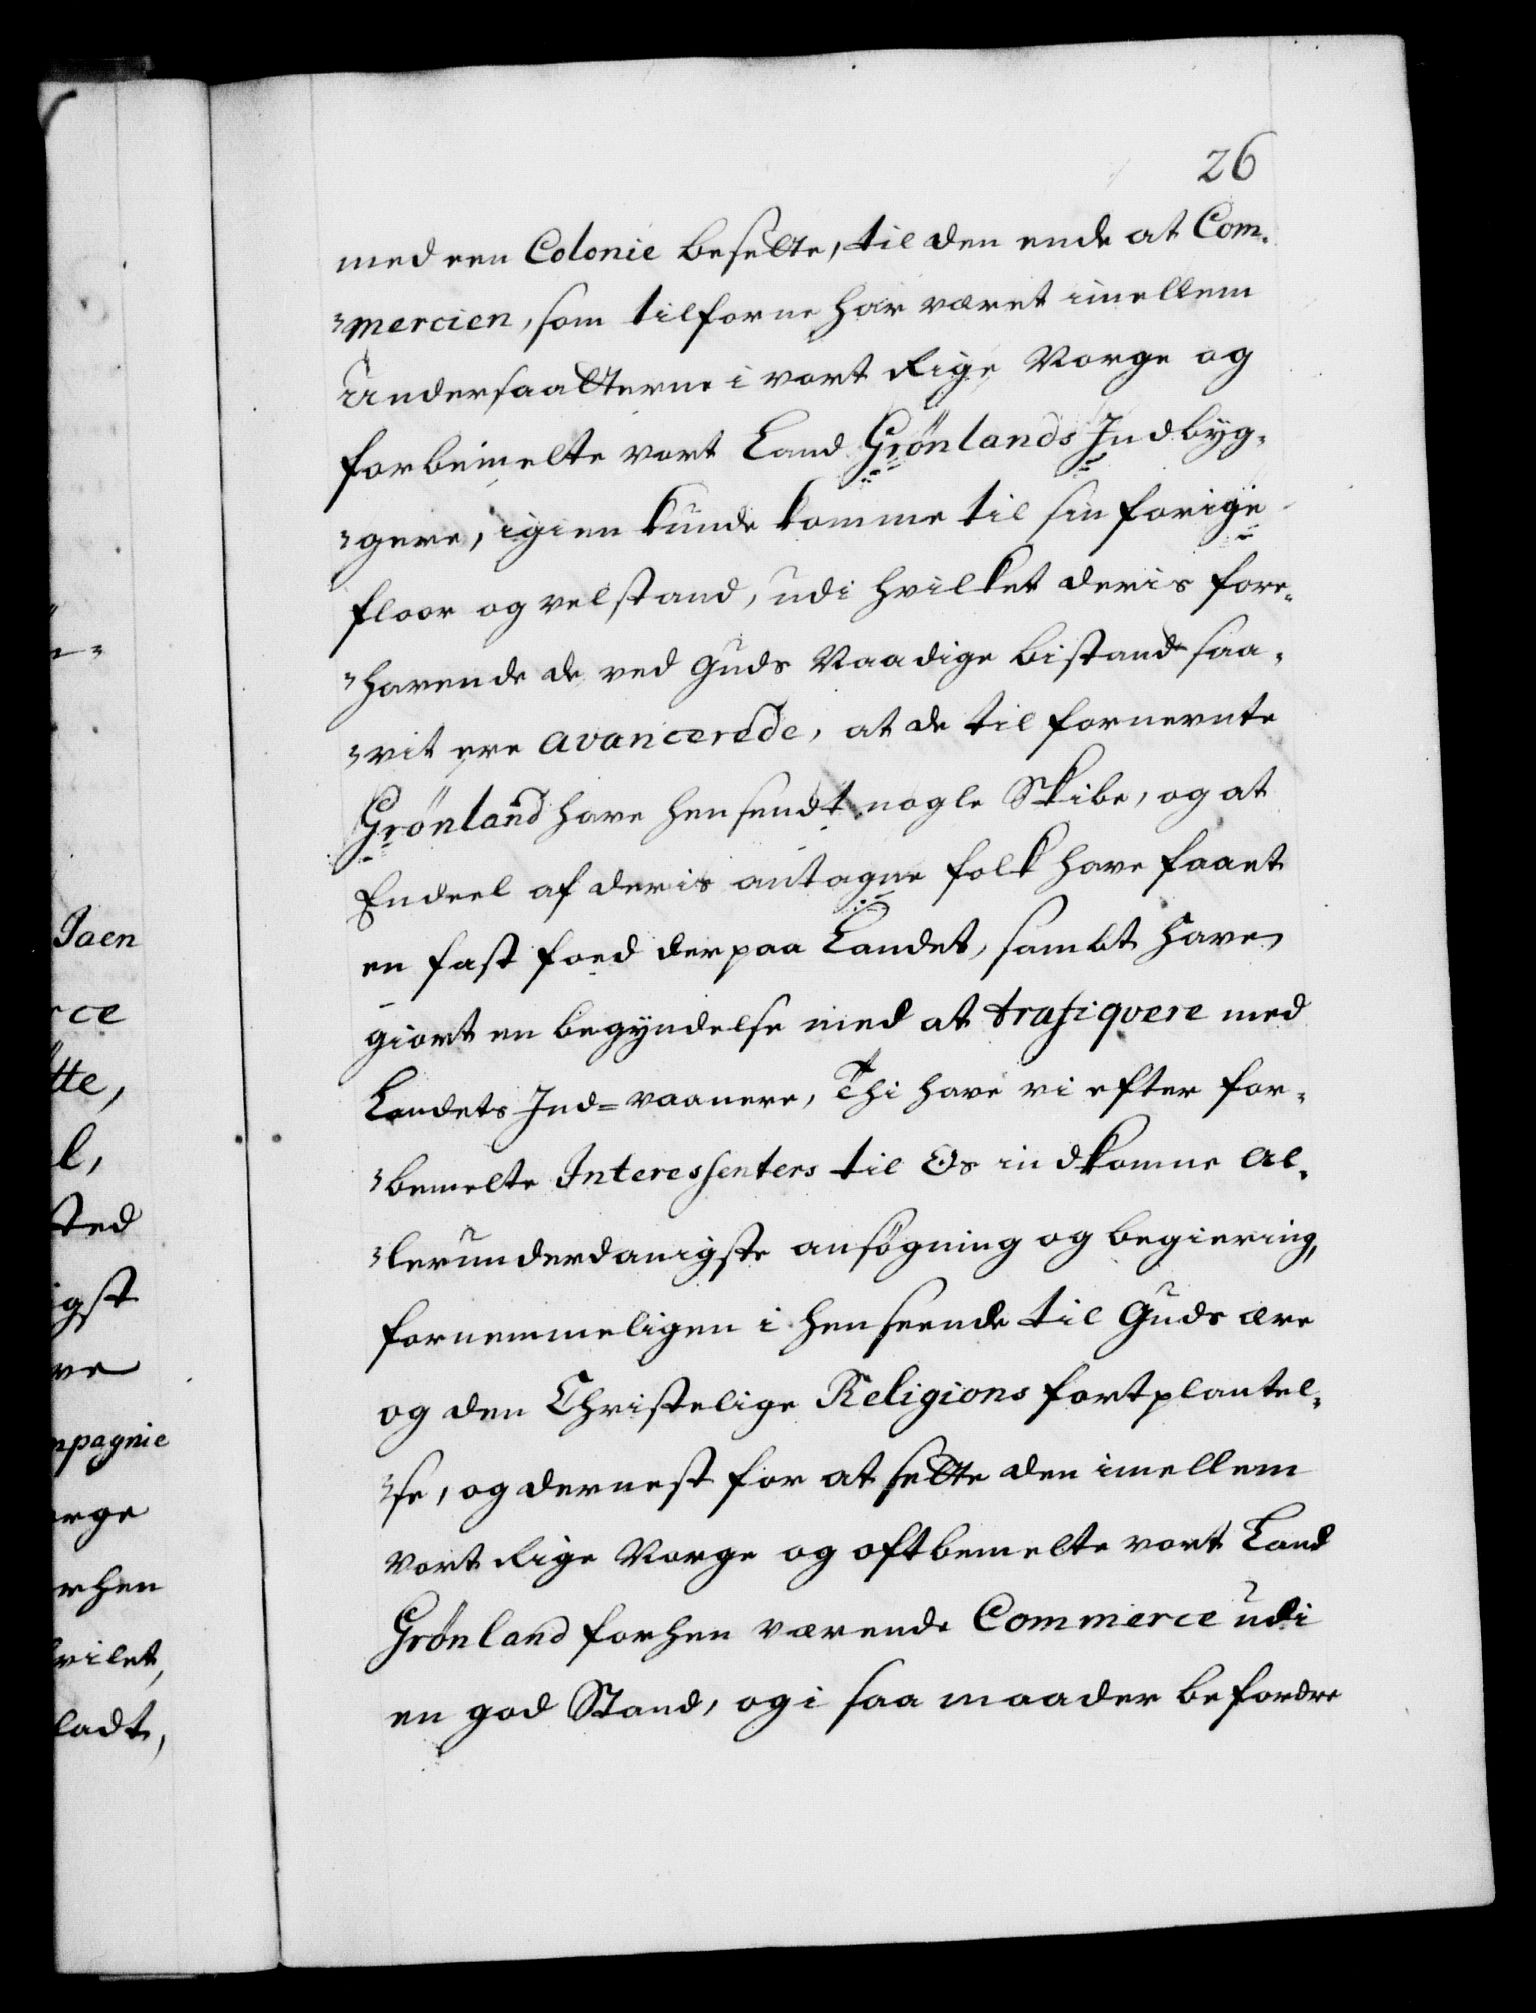 26
med een Colonie besette, til den ende at Com-
-mercien, som tilforne har været imellem
Undersaatterne i vort Rige Norge og
forbemelte vort Land Grönlands Indbyg-
-gere, igien kunde komme til sin forige
floor og velstand, udi hvilket deris fore-
-havende de ved Guds Naadige bistand saa-
-vit ere avancerede, at de til fornevnte
Grönland have hensendt nogle Skibe, og at
Endeel af deris antagne folk have faaet
en fast foed der paa Landet, sambt have
giort en begyndelse med at trafiqvere med
Landets Ind=vaanere, Thi have vi efter for-
-bemelte Interessenters til Os indkomne Al-
-lerunderdanigste ansögning og begiering,
fornemmeligen i henseende til Guds ære
og den Christelige Religions fortplantel-
-se, og dernest for at sette den imellem
vort Rige Norge og oftbemelte vort Land
Grönland forhen værende Commerce udi
en god Stand, og i saa maader befordre
Jaen
rce
tte,
l,
sted
igst
ve
mpagnie
orge
rhen
hvilet,
ladt,